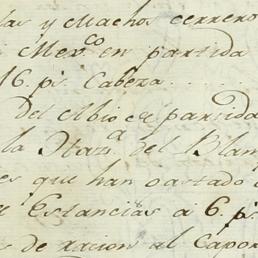 las y Machos cerrero
Merco en partida
16. ps. Cabeza
del Abio en partida
la Haza. del Blan
es que han gastado
Estancias á 6. ps.
de racion al Capor